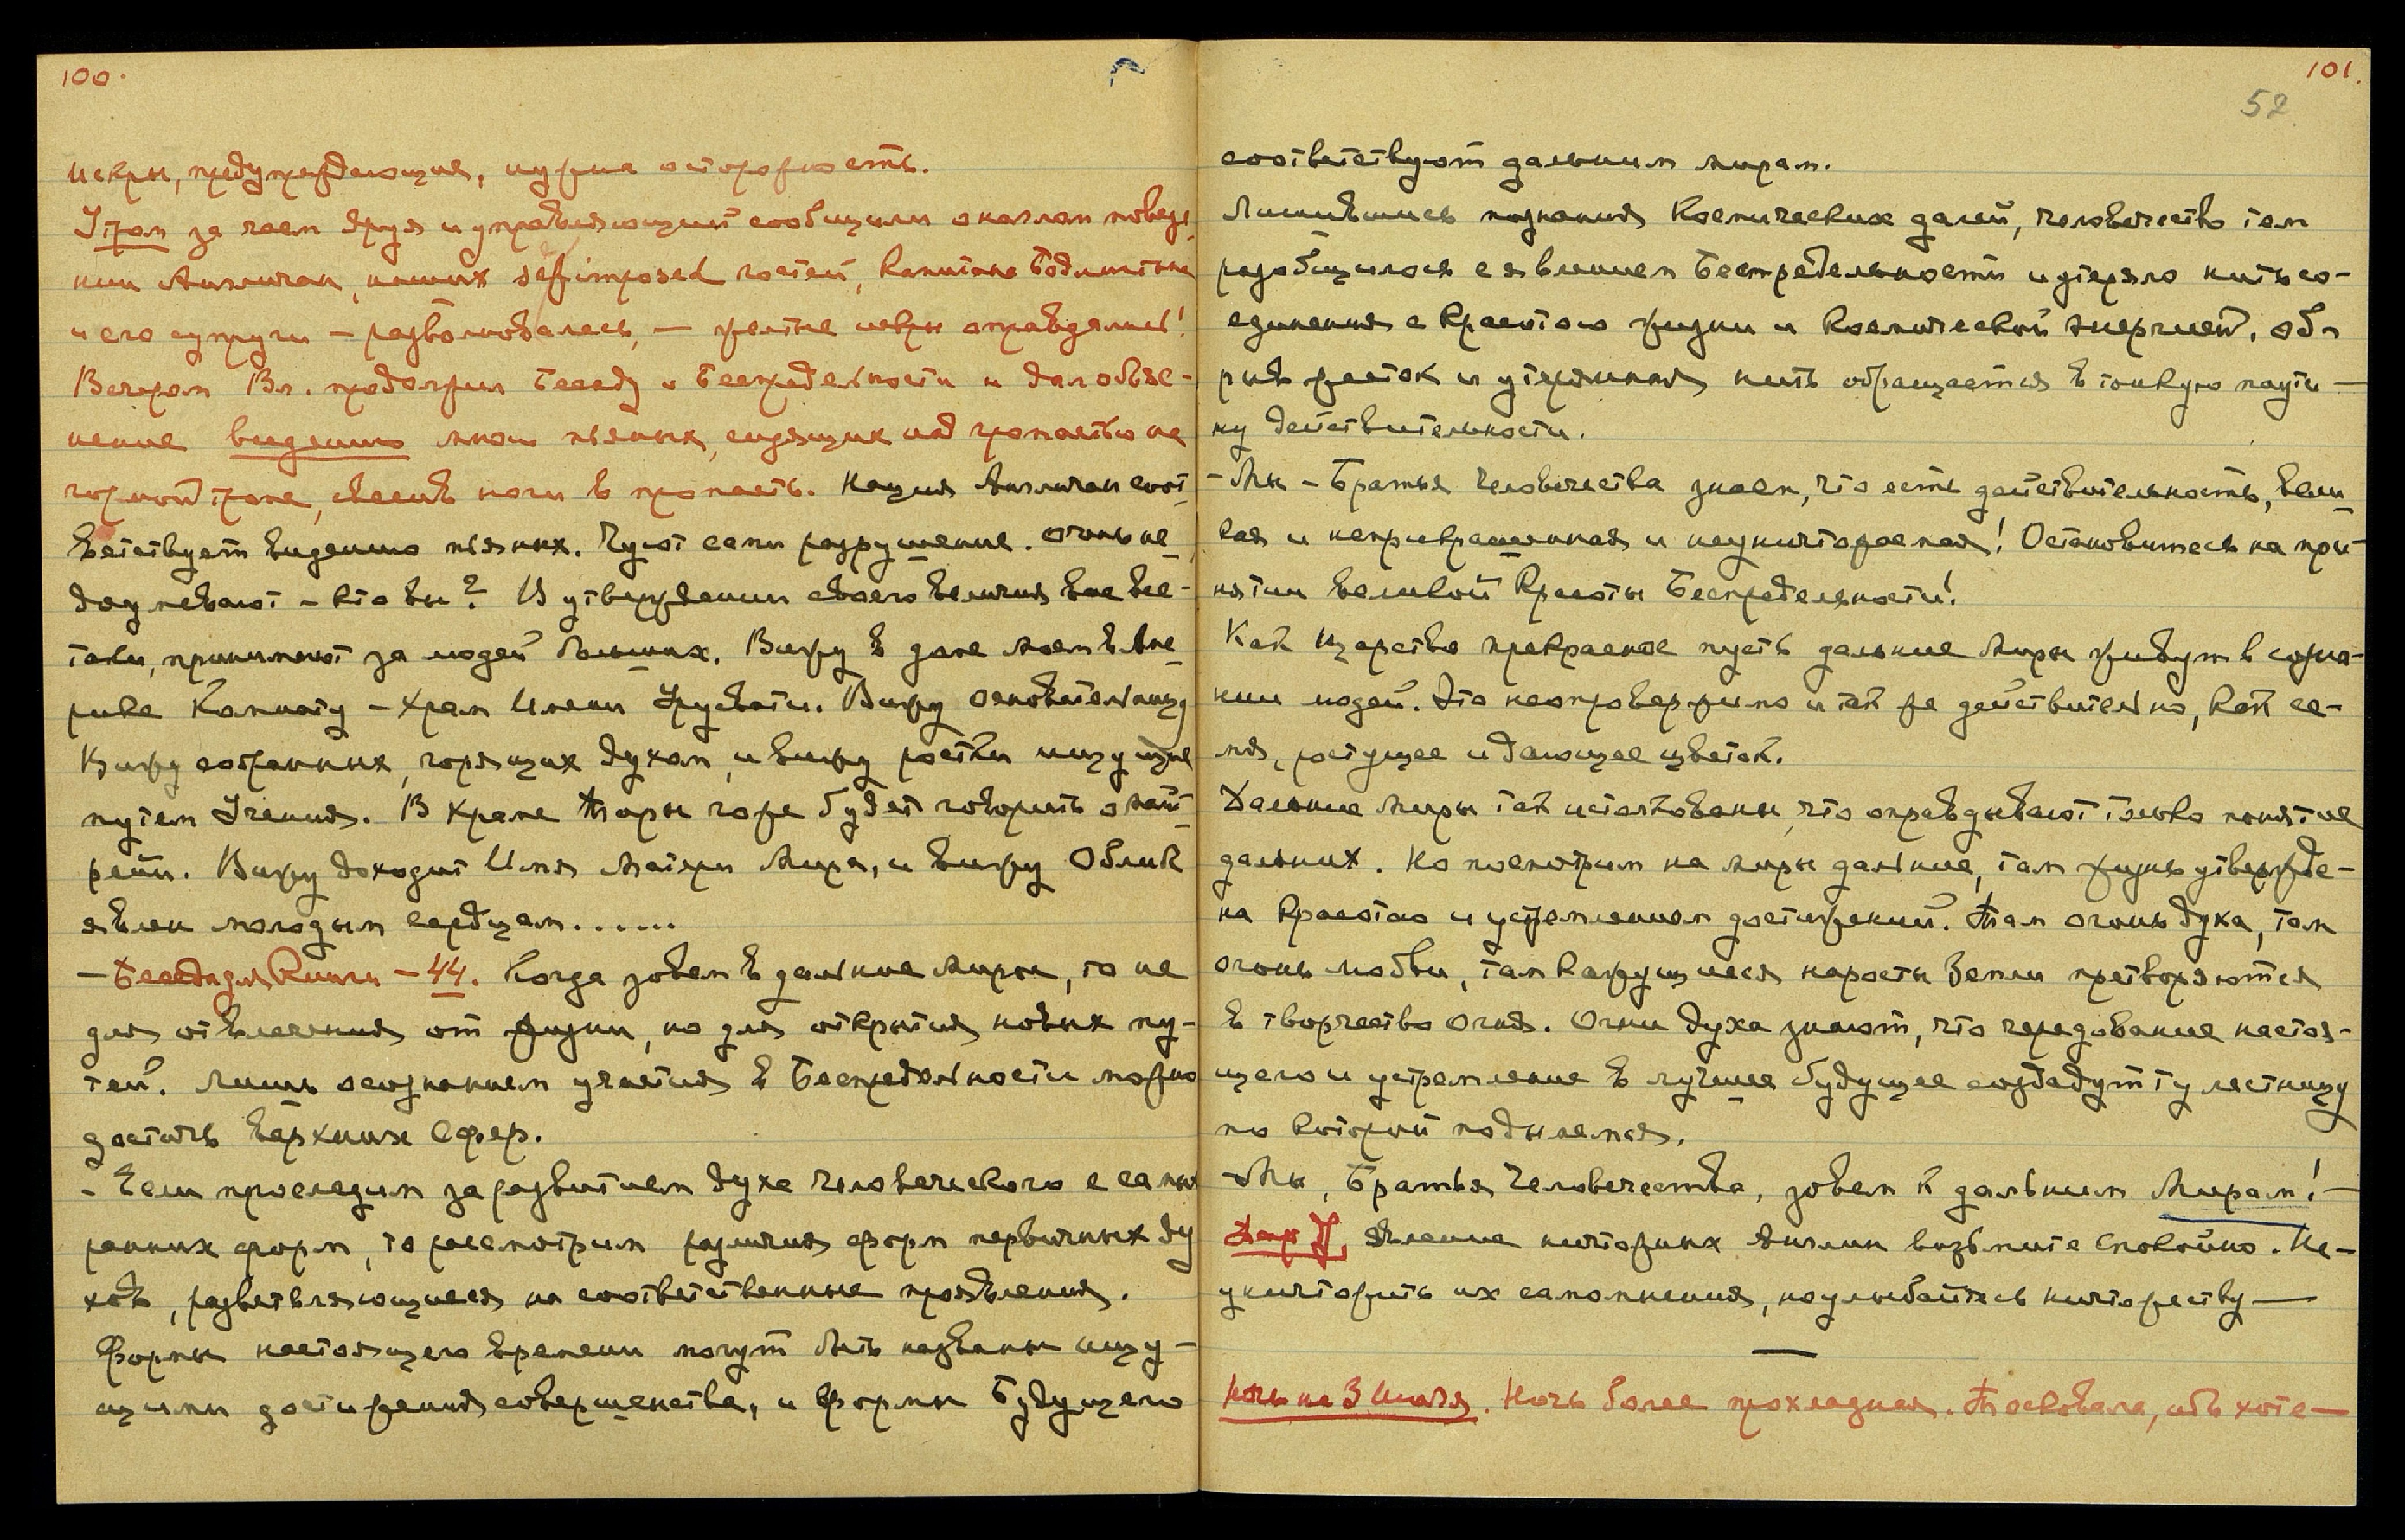 100.
искры, предупреждающие, нужна осторожность.
Утром за чаем Яруя и управляющий сообщили о наглом поведе-
нии Англичан, наших self imposed гостей, Капитана
и его супруги — разволновалась, — желтые искры оправдались!
Вечером Вл. продолжил Беседу о Беспредельности и дал объяс-
нение видению мною пьяных, сидящих над пропастью на
горной тропе, свесив ноги в пропасть. Нация Англичан соот-
ветствует видению пьяных. Чуют сами разрушение. Очень не-
доумевают – кто вы? В утверждении своего величия вас все-
таки, принимают за людей больших. Вижу в доме моем в Аме-
рике Комнату – Храм Имени Урусвати. Вижу основательницу
Вижу собранных, горящих духом, и вижу ростки ищущие
путем Учения. В Храме Торы горе будет говорить о мат-
рейи. Вижу доходит Имя Матери Мира, и вижу Облик
явлен молодым сердцам......
– Беседа для Книги – 44. Когда зовем в дальние миры, то не
для отвлечения от жизни, но для открытия новых пу-
тей. Лишь осознанием участия в Беспредельности можно
достичь верхних Сфер.
– Если проследим за развитием духа человеческого с самых
ранних форм, то рассмотрим различия форм первичных ду
хов, разветвляющиеся на соответственные проявления.
Формы настоящего времени могут быть названы ищу-
щими достижения совершенства, и Формы Будущего
101.
52
соответствуют дальним мирам.
Лишившись познания Космических далей, человечество тем
разобщилось с явлением Беспредельности и утеряло нить со-
единения с Красотою жизни и Космической энергией. Об-
рыв жесток и утерянная нить обращается в тонкую паути-
ну действительности.
– Мы – Братья Человечества знаем, что есть действительность, вели-
кая и неприкрашенная и неуничтожаемая! Остановитесь на при-
нятии великой Красоты Беспредельности!
Как Царство прекрасное пусть дальние Миры живут в созна-
нии людей. Это неопровержимо и так же действительно, как се-
мя, растущее и дающее цветок.
Дальние Миры так истолкованы, что оправдывают только понятие
дальних. Но посмотрим на миры дальние, там жизнь утвержде-
на Красотою и устремлением достижений. Там огонь духа, там
огонь любви, там кажущиеся наросты Земли претворяются
в творчество Огня. Огни духа знают, что чередование настоя-
щего и устремление в лучшее будущее создадут ту лестницу
по которой подымемся.
– Мы, Братья Человечества, зовем к дальним Мирам! –
явление ничтожных Англии возьмите спокойно. Не-
уничтожить их самомнения, но улыбайтесь ничтожеству —
Ночь на 3 Июля. Ночь более прохладная. Тосковала, ибо хоте —